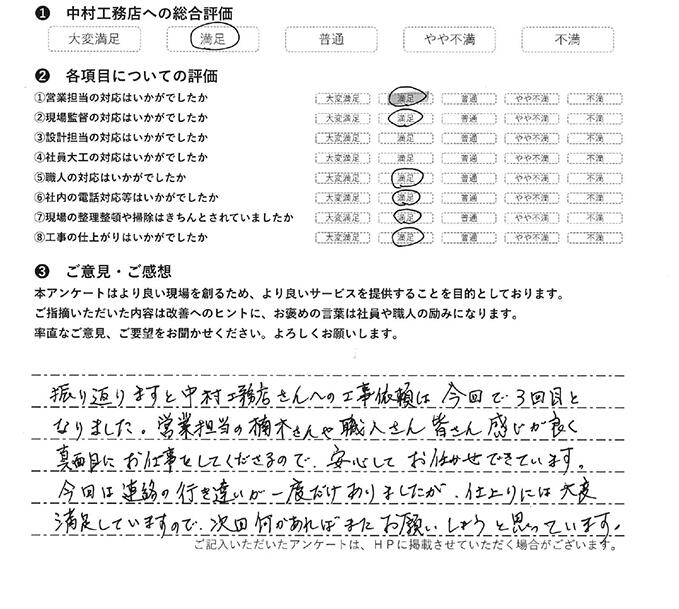 ❶ 中村工務店への総合評価
大変満足 満足 普通 やや不満 不満
❷ 各項目についての評価
①営業担当の対応はいかがでしたか 大変満足 満足 普通 やや不満 不満
②現場監督の対応はいかがでしたか 大変満足 満足 普通 やや不満 不満
③設計担当の対応はいかがでしたか 大変満足 満足 普通 やや不満 不満
④社員大工の対応はいかがでしたか 大変満足 満足 普通 やや不満 不満
⑤職人の対応はいかがでしたか 大変満足 満足 普通 やや不満 不満
⑥社内の電話対応等はいかがでしたか 大変満足 満足 普通 やや不満 不満
⑦現場の整理整頓や掃除はきちんとされていましたか 大変満足 満足 普通 やや不満 不満
⑧工事の仕上がりはいかがでしたか 大変満足 満足 普通 やや不満 不満
❸ ご意見・ご感想
本アンケートはより良い現場を創るため、より良いサービスを提供することを目的としております。
ご指摘いただいた内容は改善へのヒントに、お褒めの言葉は社員や職人の励みになります。
率直なご意見、ご要望をお聞かせください。よろしくお願いします。
振り返りますと中村工務店さんへの工事依頼は今回で3回目と
なりました。営業担当の楠木さんや職人さん皆さん感じが良く
真面目にお仕事をしてくださるので、安心してお任せできています。
今回は連絡の行き違いが一度だけありましたが、仕上りには大変
満足していますので、次回何かあればまたお願いしようと思っています。
ご記入いただいたアンケートは、HPに掲載させていただく場合がございます。